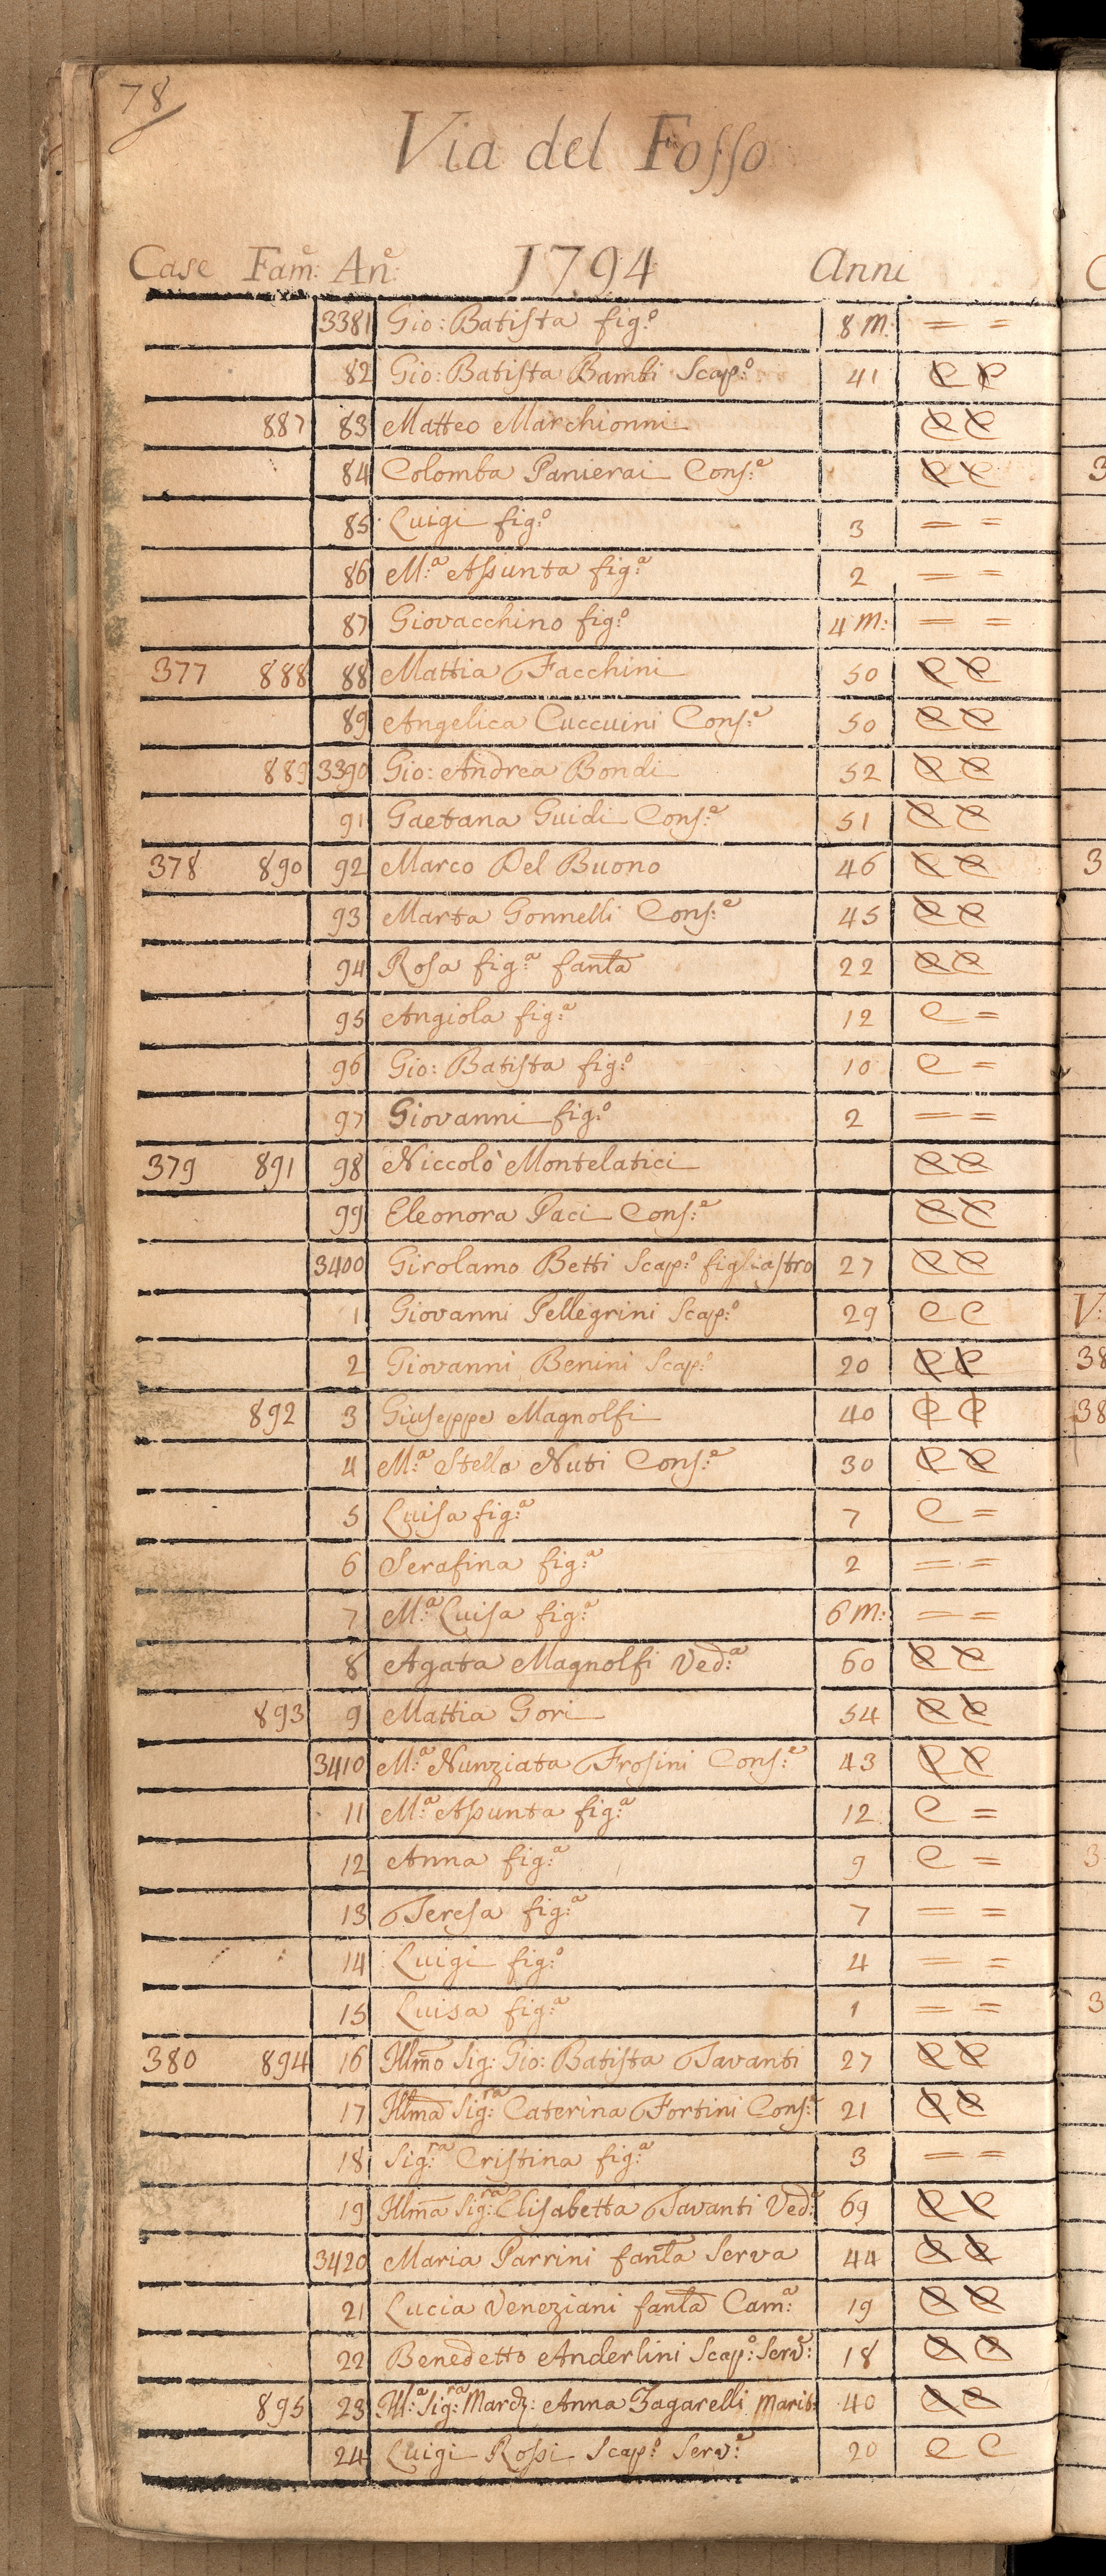 78
Via del Fosso
Case Fam:e An:e 1794 Anni
3381 Gio: Batista fig:o 8 m: = =
82 Gio: Batista Bambi Scap:o 41 C C
887 83 Matteo Marchionni C C
84 Colomba Panierai Cons:e C C
85 Luigi fig:o 3 = =
86 M:a Assunta fig:a 2 = =
87 Giovacchino fig:o 4 m: = =
377 888 88 Mattia Facchini 50 C C
89 Angelica Cuccuini Cons:e 50 C C
889 3390 Gio: Andrea Bondi 52 C C
91 Gaetana Guidi Cons:e 51 C C
378 890 92 Marco Del Buono 46 C C
93 Marta Gonnelli Cons:e 45 C C
94 Rosa fig:a fanla 22 C C
95 Angiola fig:a 12 C =
96 Gio: Batista fig:o 10 C =
97 Giovanni fig:o 2 = =
379 891 98 Niccolò Montelatici C C
99 Eleonora Paci Cons:e C C
3400 Girolamo Betti Scap:o figliastro 27 C C
1 Giovanni Pellegrini Scap:o 29 C C
2 Giovanni Benini Scap:o 20 C C
892 3 Giuseppe Magnolfi 40 C C
4 M:a Stella Nuti Cons:e 30 C C
5 Luisa fig:a 7 C =
6 Serafina fig:a 2 = =
7 M:a Luisa fig:a 6 m: = =
8 Agata Magnolfi Ved:a 60 C C
893 9 Mattia Gori 54 C C
3410 M:a Nunziata Frosini Cons:e 43 C C
11 M:a Assunta fig:a 12 C =
12 Anna fig:a 9 C =
13 Teresa fig:a 7 = =
14 Luigi fig:o 4 = =
15 Luisa fig:a 1 = =
380 894 16 Illmo Sig: Gio: Batista Tavanti 27 C C
17 Illma Sig:ra Caterina Fortini Cons:e 21 C C
18 Sig:ra Cristina fig:a 3 = =
19 Illma Sig:ra Elisabetta Tavanti Ved:a 69 C C
3420 Maria Parrini fanla Serva 44 C C
21 Lucia Veneziani fanla Cam:a 19 C C
22 Benedetto Anderlini Scap:o Serv:e 18 C C
895 23 Ill:a Sig:ra March: Anna Zagarelli Marit: 40 C C
24 Luigi Rossi Scap:o Serv:e 20 C C